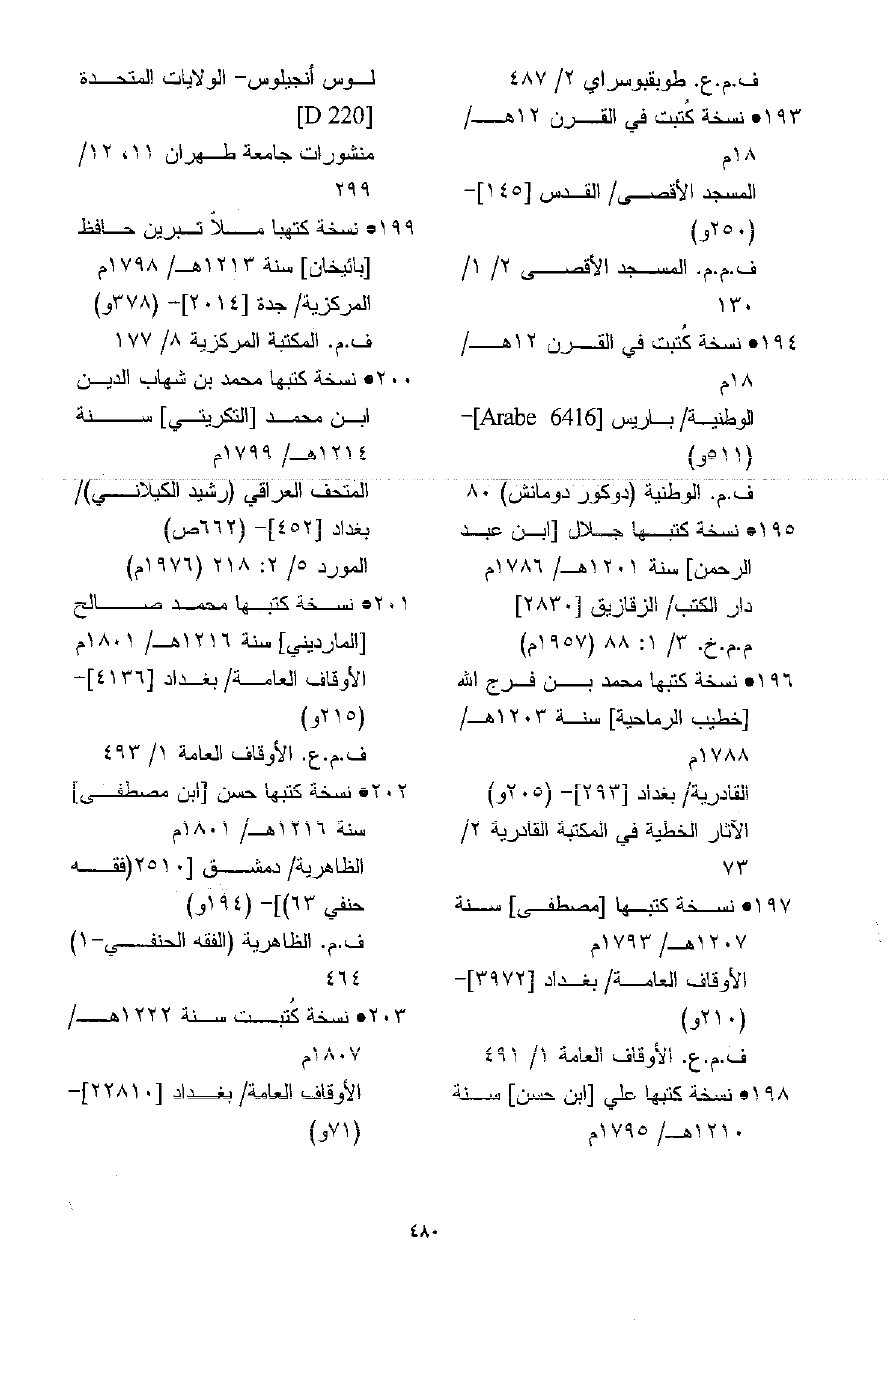 ف.م.ع. طوبقبوسراي ٢/ ٤٨٧
١٩٣● نسخة كُتبت في القرن ١٢هـ/
١٨م
المسجد الأقصى/ القدس [١٤٥]-
(٢٥٠و)
ف.م.م. المسجد الأقصى ٢/ ١/
١٣٠
١٩٤● نسخة كُتبت في القرن ١٢هـ/
١٨م
الوطنية/ باريس [Arabe 6416]-
(٥١١و)
ف.م. الوطنية (دوكور دومانش) ٨٠
١٩٥● نسخة كتبها جلال [ابن عبد
الرحمن] سنة ١٢٠١هـ/ ١٧٨٦م
دار الكتب/ الزقازيق [٢٨٣٠]
م.م.خ. ٣/ ١: ٨٨ (١٩٥٧م)
١٩٦● نسخة كتبها محمد بن فرج الله
[خطيب الرماحية] سنة ١٢٠٣هـ/
١٧٨٨م
القادرية/ بغداد [٢٩٣]- (٢٠٥و)
الآثار الخطية في المكتبة القادرية ٢/
٧٣
١٩٧● نسخة كتبها [مصطفى] سنة
١٢٠٧هـ/ ١٧٩٣م
الأوقاف العامة/ بغداد [٣٩٧٢]-
(٢١٠و)
ف.م.ع. الأوقاف العامة ١/ ٤٩١
١٩٨● نسخة كتبها علي [ابن حسن] سنة
١٢١٠هـ/ ١٧٩٥م
لوس أنجيلوس- الولايات المتحدة
[D 220]
منشورات جامعة طهران ١١، ١٢/
٢٩٩
١٩٩● نسخة كتبها ملاّ تبرين حافظ
[بائيخان] سنة ١٢١٣هـ/ ١٧٩٨م
المركزية/ جدة [٢٠١٤]- (٣٧٨و)
ف.م. المكتبة المركزية ٨/ ١٧٧
٢٠٠● نسخة كتبها محمد بن شهاب الدين
ابن محمد [التكريتي] سنة
١٢١٤هـ/ ١٧٩٩م
المتحف العراقي (رشيد الكيلاني)/
بغداد [٤٥٢]- (٦٦٢ص)
المورد ٥/ ٢: ٢١٨ (١٩٧٦م)
٢٠١● نسخة كتبها محمد صالح
[المارديني] سنة ١٢١٦هـ/ ١٨٠١م
الأوقاف العامة/ بغداد [٤١٣٦]-
(٢١٥و)
ف.م.ع. الأوقاف العامة ١/ ٤٩٣
٢٠٢● نسخة كتبها حسن [ابن مصطفى]
سنة ١٢١٦هـ/ ١٨٠١م
الظاهرية/ دمشق [٢٥١٠(فقه
حنفي ٦٣)]- (١٩٤و)
ف.م. الظاهرية (الفقه الحنفي-١)
٤٦٤
٢٠٣● نسخة كُتبت سنة ١٢٢٢هـ/
١٨٠٧م
الأوقاف العامة/ بغداد [٢٢٨١٠]-
(٧١و)
٤٨٠